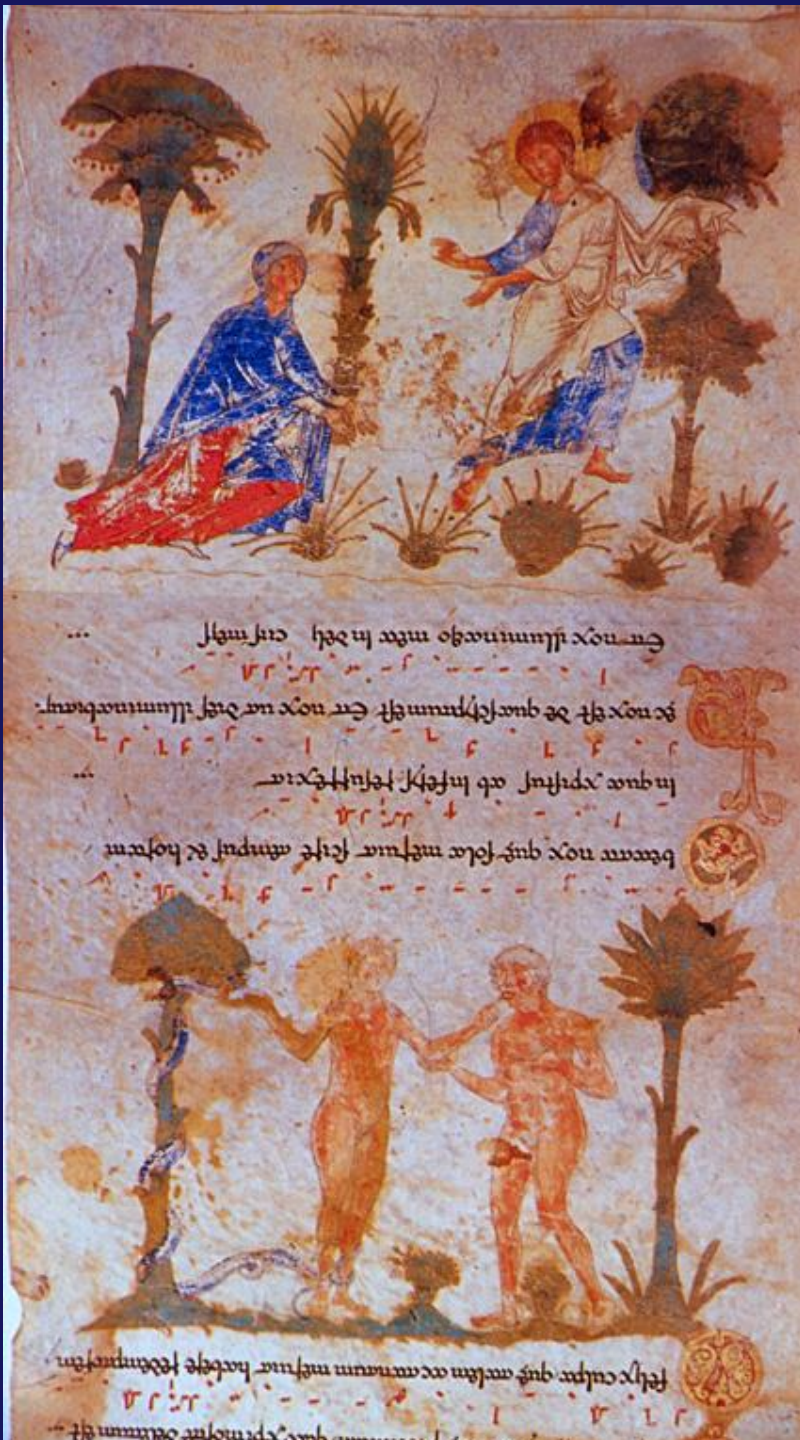 xpi morte deletum est
felix culpa quę talem ac tantum meruit habere redemptorem
beata nox quę sola meruit scire tempus & horam
in qua xpistus ab inferis resurrexit
Hęc nox est de qua scriptum est Et nox ut dies illuminabitur.
Et nox illuminatio mea in deli ciis meis